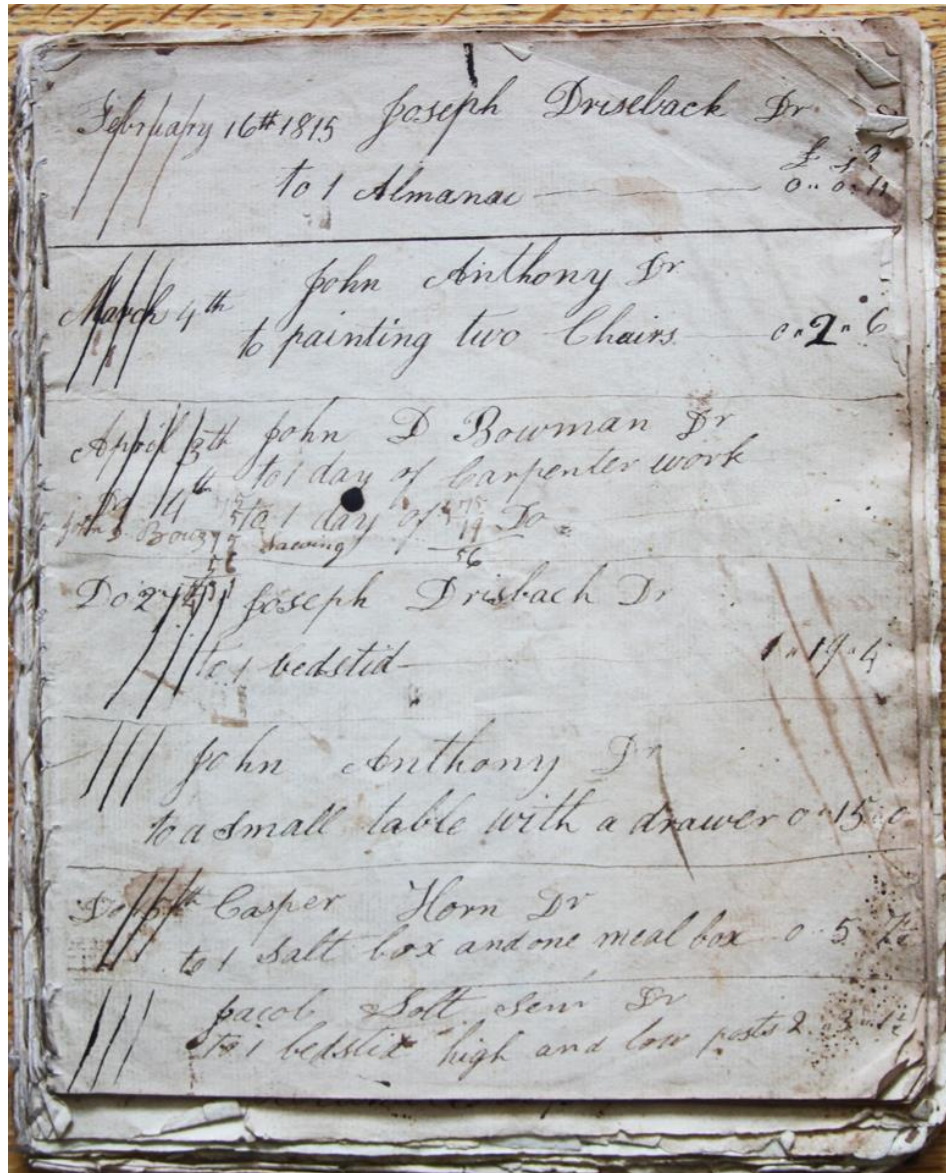 February 16th 1815 Joseph Driseback Dr
£ s
to 1 Almanac 0 " 0 "
John Anthony Dr
March 4th
to painting two Chairs 0 " 2 " 6
April 13th John D Bowman Dr
to 1 day of Carpenter work
Do 14th to 1 day of Do
sawing
56
Do Joseph Drisbach Dr
to 1 bedstid 1 " 19 " 4
John Anthony Dr
to a small table with a drawer 0 " 15 " 0
Do Casper Horn Dr
to 1 salt box and one meal box 0 " 5 "
Jacob Solt Senr Dr
to 1 bedstid high and low posts 2 " 3 "